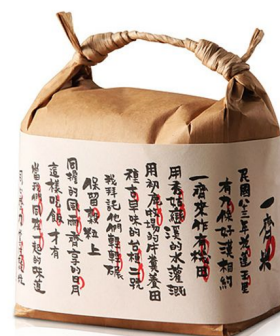 一齊米
民國八三年花蓮玉里
有九條好漢相約
一齊來作有機田
用秀姑巒溪的水灌溉
用初鹿牧場的牛糞養田
種古早味的台梗二號
我拜託他們輕輕碾
保留穀粒上
同擔的風雨齊享的日月
這樣吃飯才有
當我們同在一起的味道